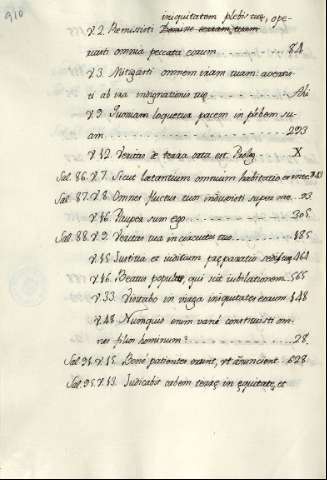 910
iniquitatem plebis tuæ, ope-
V.2. Remisisti
ruisti omnia peccata eorum ........ 84
V.3. Mitigasti omnem iram tuam: avertis-
ti ab ira indignationis tuę ........ Ibi
V.9. Quoniam loquetur pacem in plebem su-
am ........ 293
V.12. Veritas de terra orta est. X
Sal. 86. V.7. Sicut lætantium omnium habitatio
Sal. 87. V.8. Omnes fluctus tuos induxisti super me. 93
V.16. Pauper sum ego ........ 305
Sal. 88. V.9. Veritas tua in circuitu tuo ........ 185
V.15. Justitia et iuditium pręparatio sedis tuę. 164
V.16. Beatus populus, qui scit iubilationem. 565
V.33. Visitabo in virga iniquitates eorum 148
V.48. Nunquid enim vanè constituisti om-
nes filios hominum? ........ 28.
Sal. 91. V.15. Bene patientes erunt, vt añuncient. 628
Sal. 95. V.13. Judicabit orbem terrę in ęquitate, et